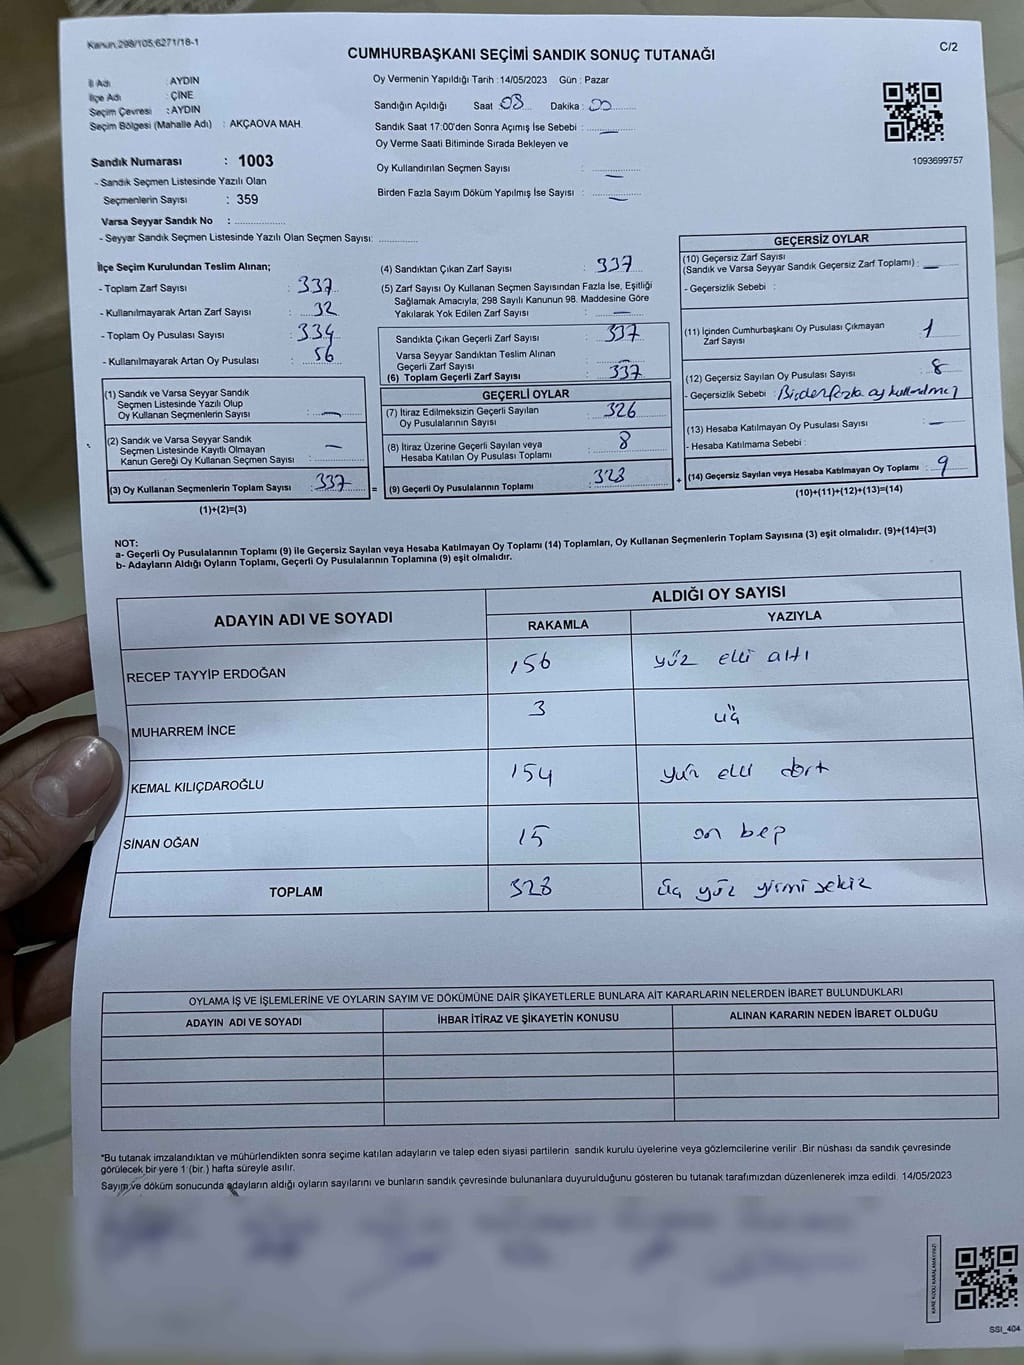 Kanun:298/105;6271/18-1
C/2
CUMHURBAŞKANI SEÇİMİ SANDIK SONUÇ TUTANAĞI
İl Adı : AYDIN
İlçe Adı : ÇİNE
Seçim Çevresi : AYDIN
Seçim Bölgesi (Mahalle Adı) : AKÇAOVA MAH.
Sandık Numarası : 1003
- Sandık Seçmen Listesinde Yazılı Olan
Seçmenlerin Sayısı : 359
Varsa Seyyar Sandık No :
- Seyyar Sandık Seçmen Listesinde Yazılı Olan Seçmen Sayısı:
Oy Vermenin Yapıldığı Tarih :14/05/2023 Gün : Pazar
Sandığın Açıldığı Saat 08 Dakika : 00
Sandık Saat 17:00'den Sonra Açımış İse Sebebi : —
Oy Verme Saati Bitiminde Sırada Bekleyen ve
Oy Kullandırılan Seçmen Sayısı : —
Birden Fazla Sayım Döküm Yapılmış İse Sayısı : —
1093699757
İlçe Seçim Kurulundan Teslim Alınan;
- Toplam Zarf Sayısı : 337
- Kullanılmayarak Artan Zarf Sayısı : 32
- Toplam Oy Pusulası Sayısı : 334
- Kullanılmayarak Artan Oy Pusulası : 56
(1) Sandık ve Varsa Seyyar Sandık
Seçmen Listesinde Yazılı Olup
Oy Kullanan Seçmenlerin Sayısı : —
(2) Sandık ve Varsa Seyyar Sandık
Seçmen Listesinde Kayıtlı Olmayan
Kanun Gereği Oy Kullanan Seçmen Sayısı : —
(3) Oy Kullanan Seçmenlerin Toplam Sayısı : 337 =
(1)+(2)=(3)
(4) Sandıktan Çıkan Zarf Sayısı : 337
(5) Zarf Sayısı Oy Kullanan Seçmen Sayısından Fazla İse, Eşitliği
Sağlamak Amacıyla; 298 Sayılı Kanunun 98. Maddesine Göre
Yakılarak Yok Edilen Zarf Sayısı : —
Sandıkta Çıkan Geçerli Zarf Sayısı : 337
Varsa Seyyar Sandıktan Teslim Alınan
Geçerli Zarf Sayısı :
(6) Toplam Geçerli Zarf Sayısı : 337
GEÇERLİ OYLAR
(7) İtiraz Edilmeksizin Geçerli Sayılan
Oy Pusulalarının Sayısı : 326
(8) İtiraz Üzerine Geçerli Sayılan veya
Hesaba Katılan Oy Pusulası Toplamı : 8
(9) Geçerli Oy Pusulalarının Toplamı : 328 +
GEÇERSİZ OYLAR
(10) Geçersiz Zarf Sayısı
(Sandık ve Varsa Seyyar Sandık Geçersiz Zarf Toplamı) : —
- Geçersizlik Sebebi :
(11) İçinden Cumhurbaşkanı Oy Pusulası Çıkmayan
Zarf Sayısı : 1
(12) Geçersiz Sayılan Oy Pusulası Sayısı : 8
- Geçersizlik Sebebi : Birden fazla oy kullanılmış
(13) Hesaba Katılmayan Oy Pusulası Sayısı : —
- Hesaba Katılmama Sebebi :
(14) Geçersiz Sayılan veya Hesaba Katılmayan Oy Toplamı : 9
(10)+(11)+(12)+(13)=(14)
NOT:
a- Geçerli Oy Pusulalarının Toplamı (9) ile Geçersiz Sayılan veya Hesaba Katılmayan Oy Toplamı (14) Toplamları, Oy Kullanan Seçmenlerin Toplam Sayısına (3) eşit olmalıdır. (9)+(14)=(3)
b- Adayların Aldığı Oyların Toplamı, Geçerli Oy Pusulalarının Toplamına (9) eşit olmalıdır.
ADAYIN ADI VE SOYADI
ALDIĞI OY SAYISI
RAKAMLA YAZIYLA
RECEP TAYYİP ERDOĞAN 156 yüz elli altı
MUHARREM İNCE 3 üç
KEMAL KILIÇDAROĞLU 154 yüz elli dört
SİNAN OĞAN 15 on beş
TOPLAM 328 üç yüz yirmi sekiz
OYLAMA İŞ VE İŞLEMLERİNE VE OYLARIN SAYIM VE DÖKÜMÜNE DAİR ŞİKAYETLERLE BUNLARA AİT KARARLARIN NELERDEN İBARET BULUNDUKLARI
ADAYIN ADI VE SOYADI İHBAR İTİRAZ VE ŞİKAYETİN KONUSU ALINAN KARARIN NEDEN İBARET OLDUĞU
*Bu tutanak imzalandıktan ve mühürlendikten sonra seçime katılan adayların ve talep eden siyasi partilerin sandık kurulu üyelerine veya gözlemcilerine verilir .Bir nüshası da sandık çevresinde
görülecek bir yere 1 (bir ) hafta süreyle asılır.
Sayım ve döküm sonucunda adayların aldığı oyların sayılarını ve bunların sandık çevresinde bulunanlara duyurulduğunu gösteren bu tutanak tarafımızdan düzenlenerek imza edildi. 14/05/2023
KARE KODU KARALAMAYINIZ!
SSI_404